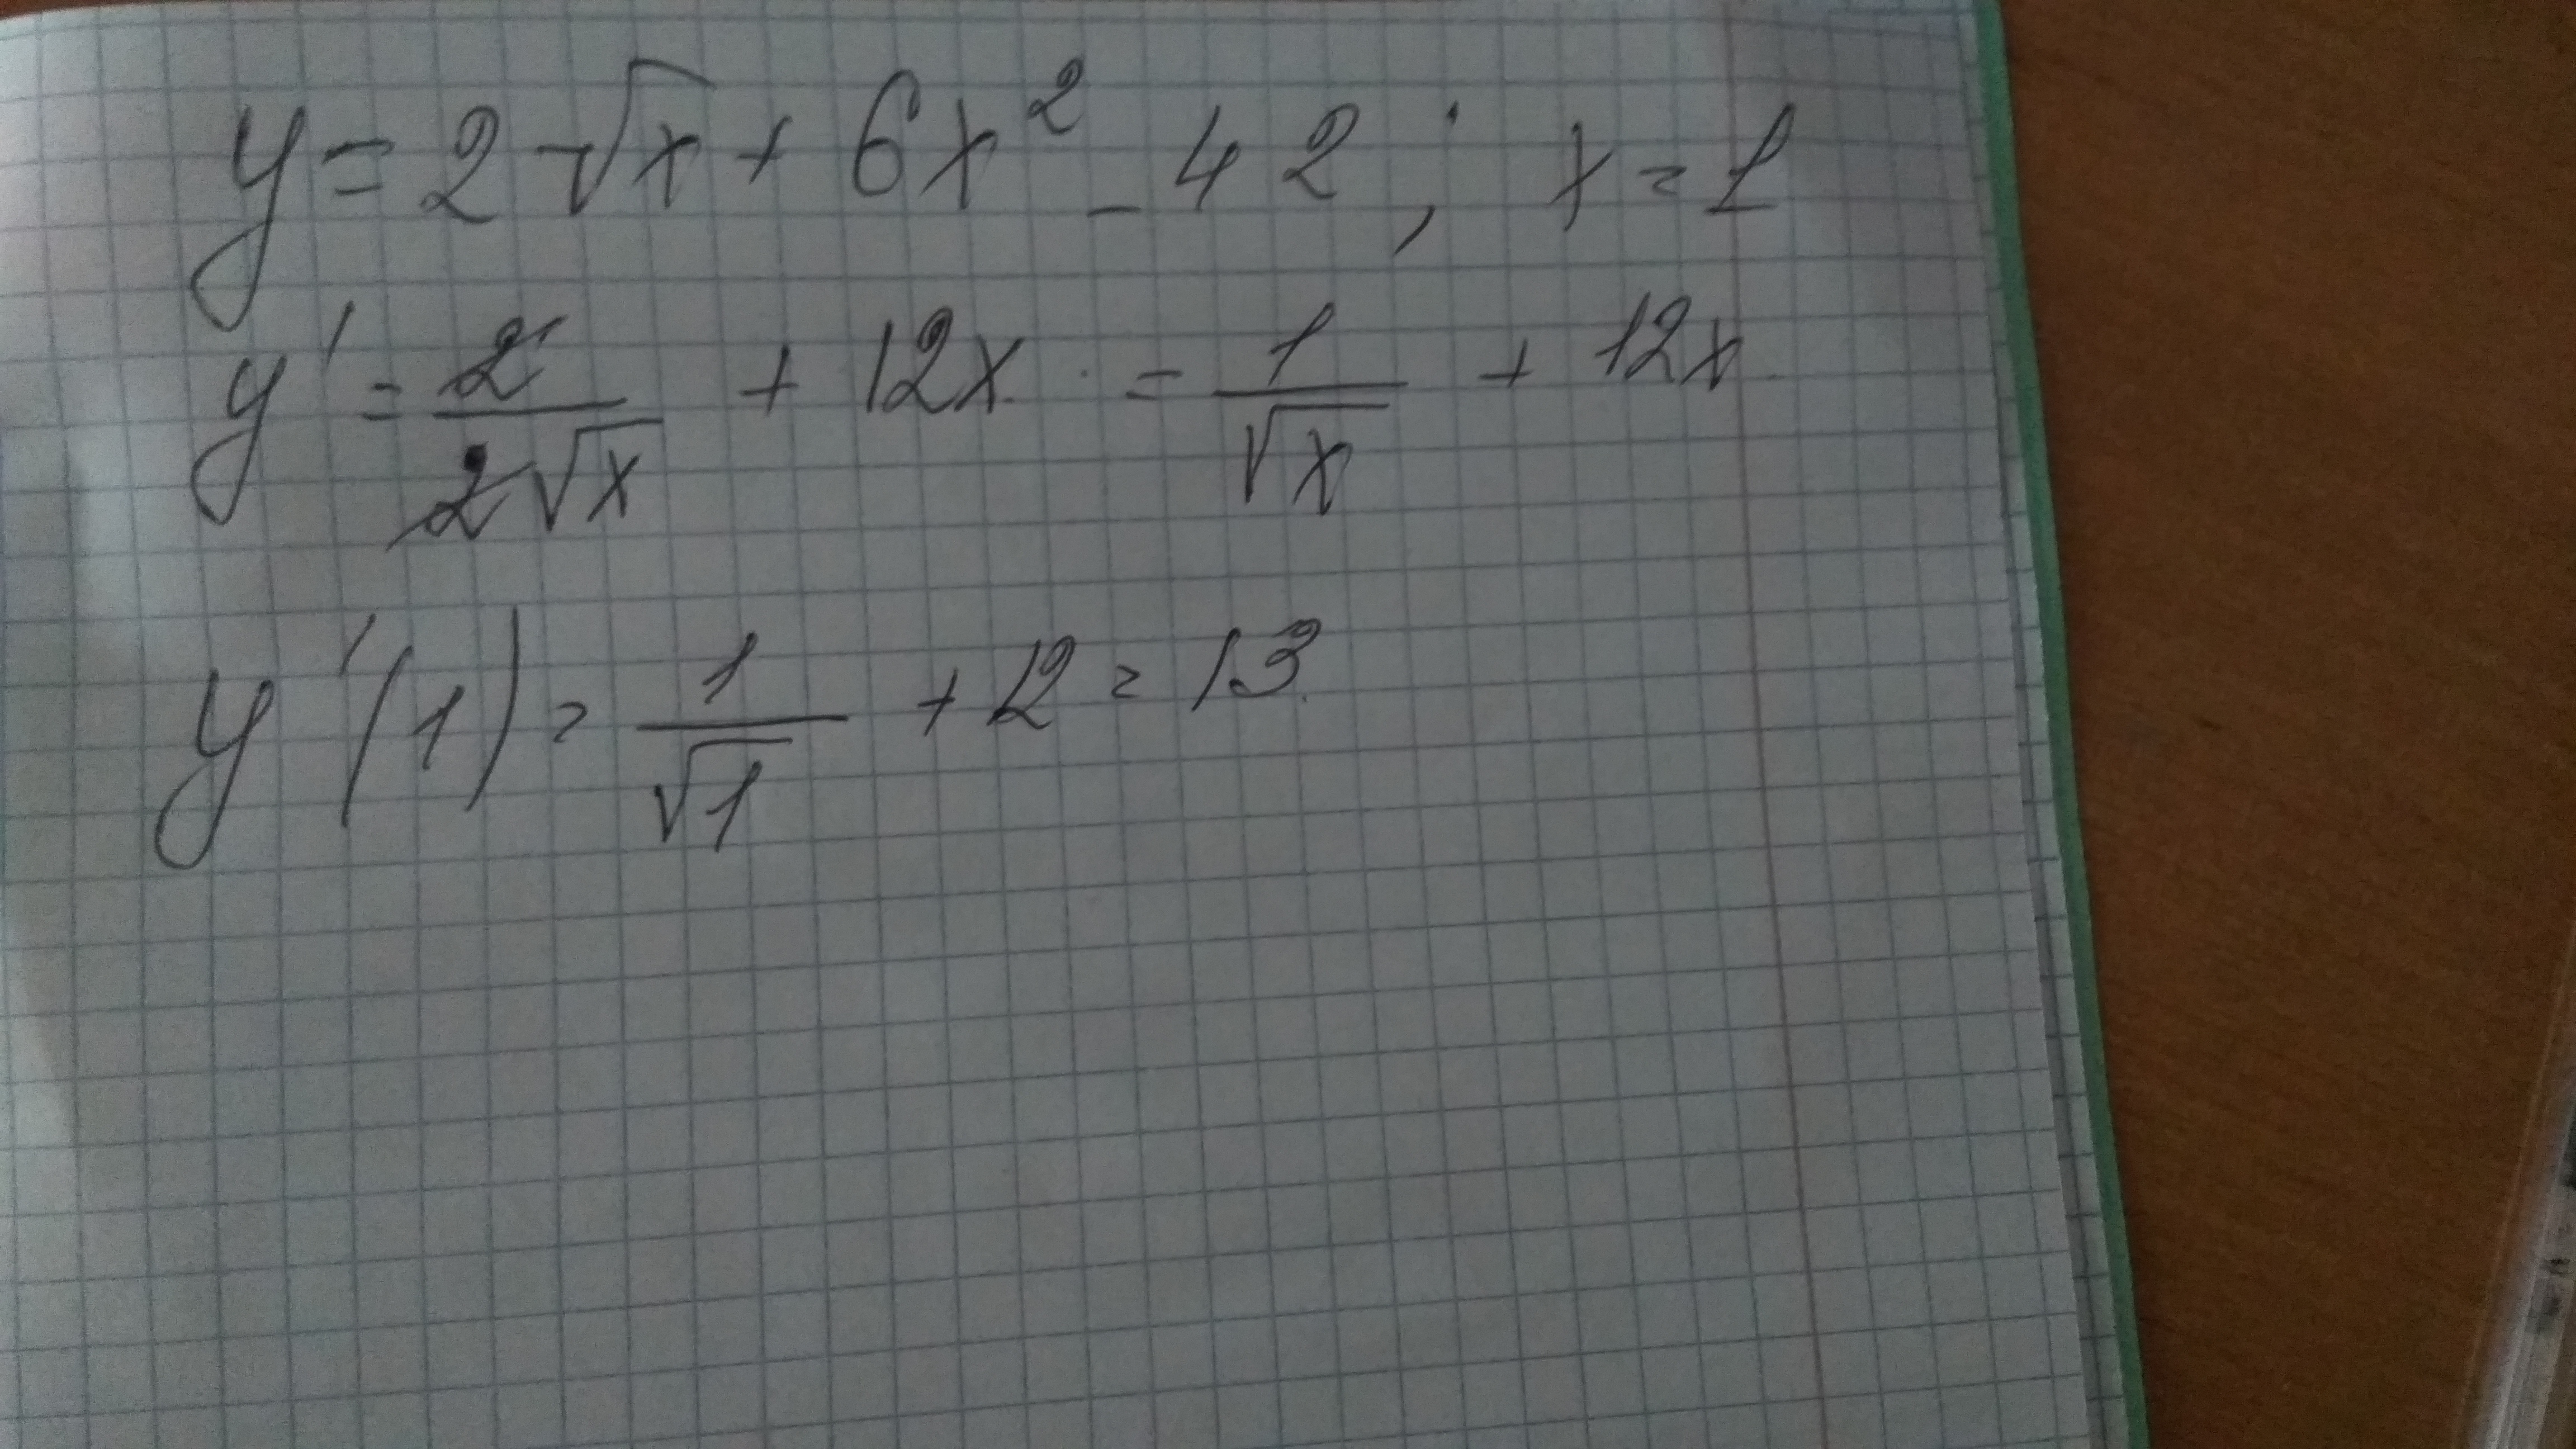 y = 2√x + 6x² - 42; x = 1
y' = 2/2√x + 12x = 1/√x + 12x
y'(1) = 1/√1 + 12 = 13